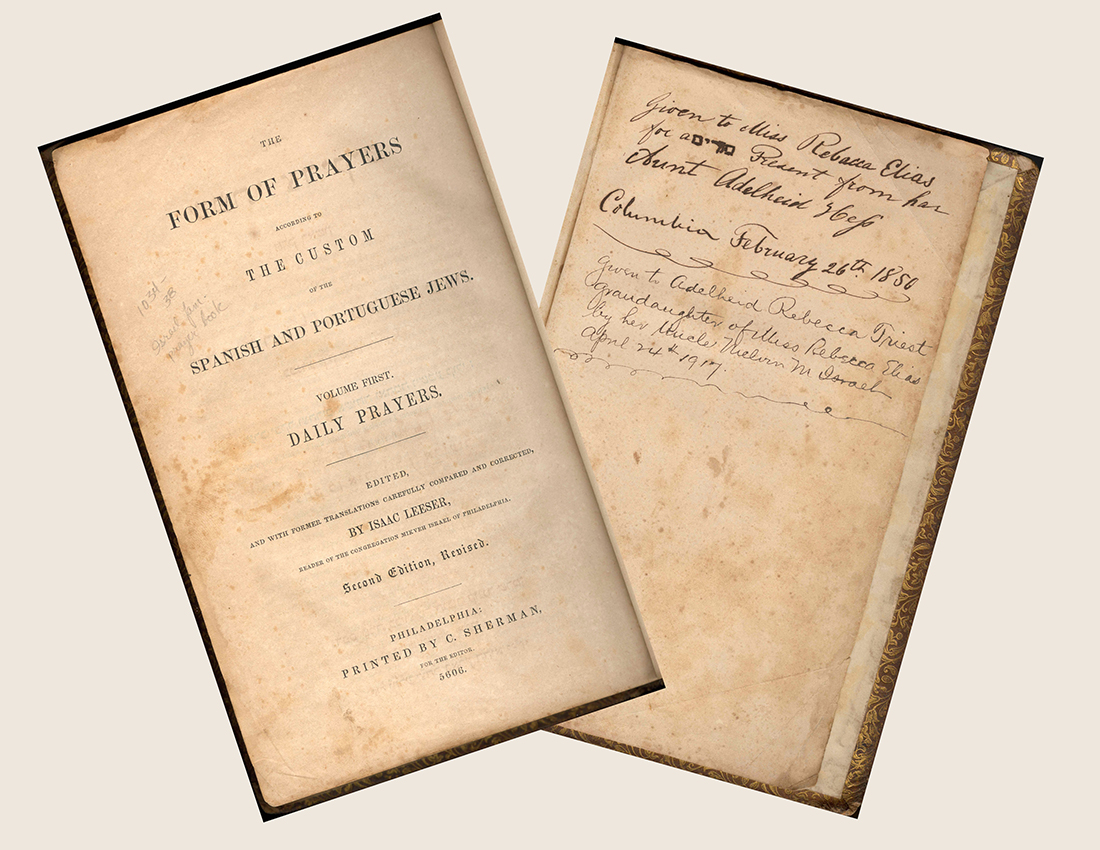 THE
FORM OF PRAYERS
ACCORDING TO
THE CUSTOM
OF THE
SPANISH AND PORTUGUESE JEWS.
VOLUME FIRST.
DAILY PRAYERS.
EDITED,
AND WITH FORMER TRANSLATIONS CAREFULLY COMPARED AND CORRECTED,
BY ISAAC LEESER,
READER OF THE CONGREGATION MIKVEH ISRAEL OF PHILADELPHIA.
Second Edition, Revised.
PHILADELPHIA:
PRINTED BY C. SHERMAN,
FOR THE EDITOR.
5606.
38
Israel fam.
prayer book
Given to Miss Rebecca Elias
for a פורים Present from her
Aunt Adelheid Hess
Columbia February 26th 1850
Given to Adelheid Rebecca Triest
grandaughter of Miss Rebecca Elias
by her Uncle Melvin M Israel
April 24th 1917.